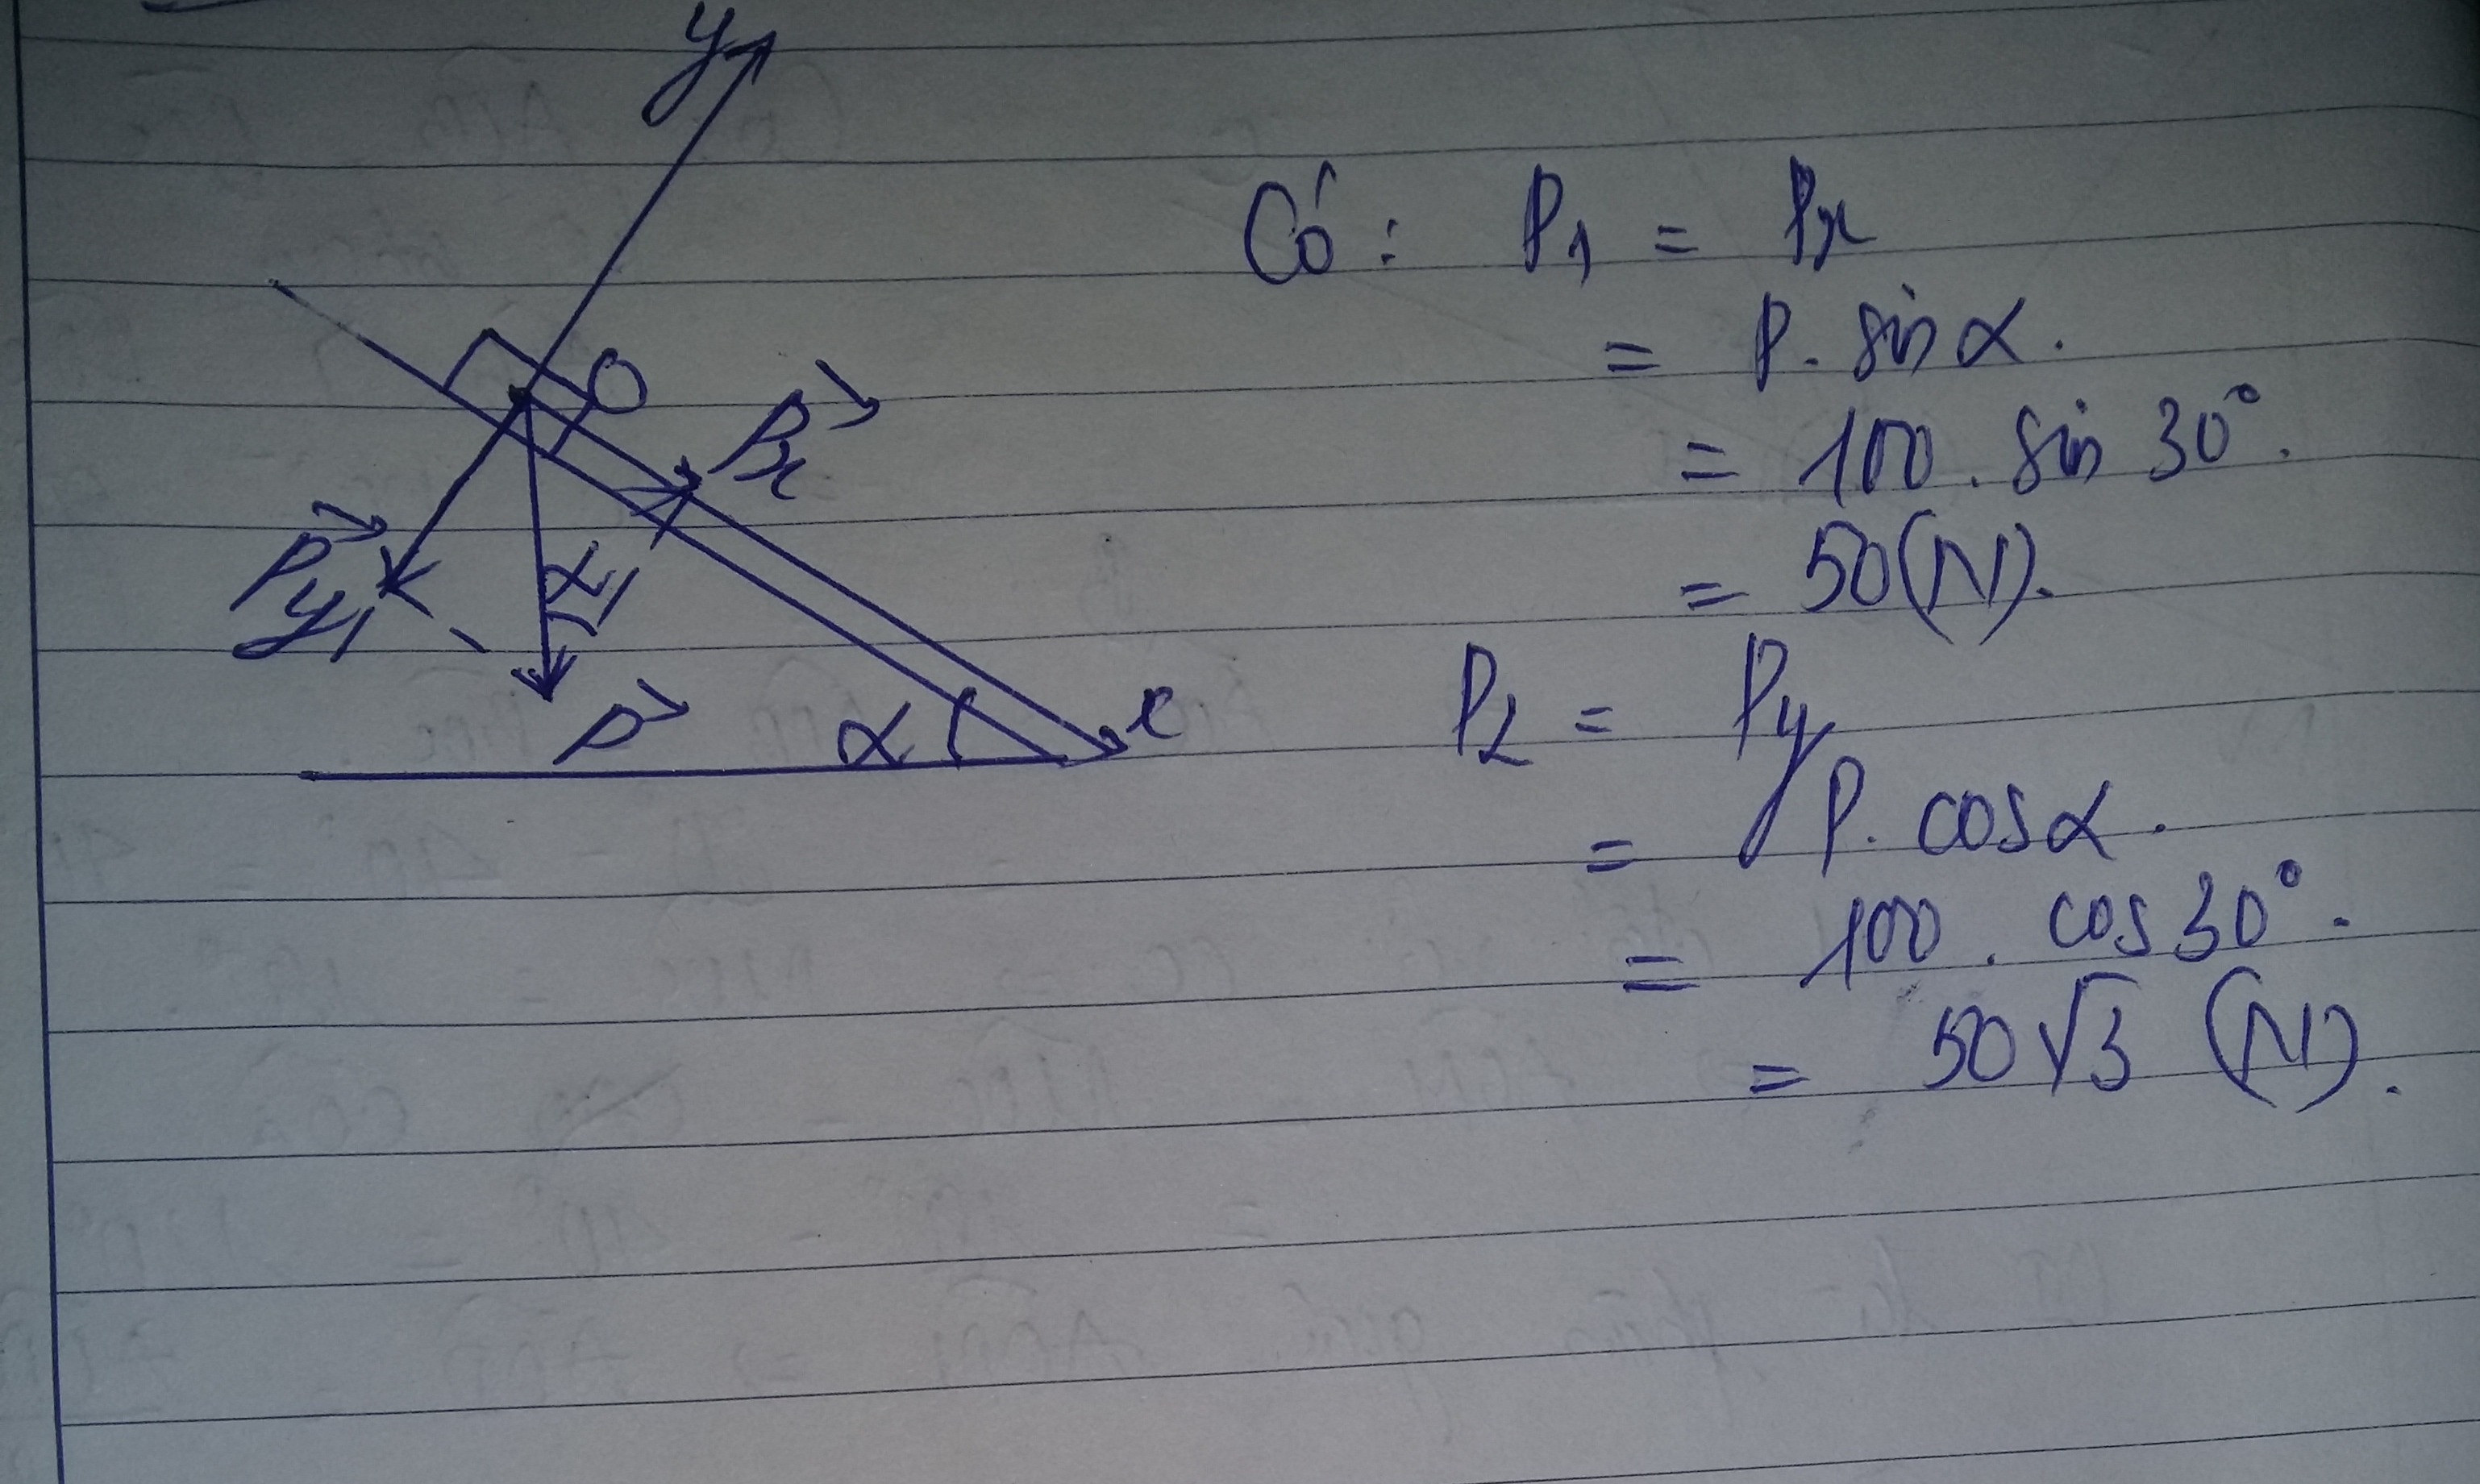 y
O
Px
Py
α
P
α
x
Có: P1 = Px
= P. sin α.
= 100. sin 30°.
= 50(N).
P2 = Py
= P. cos α.
= 100. cos 30°.
= 50√3 (N).